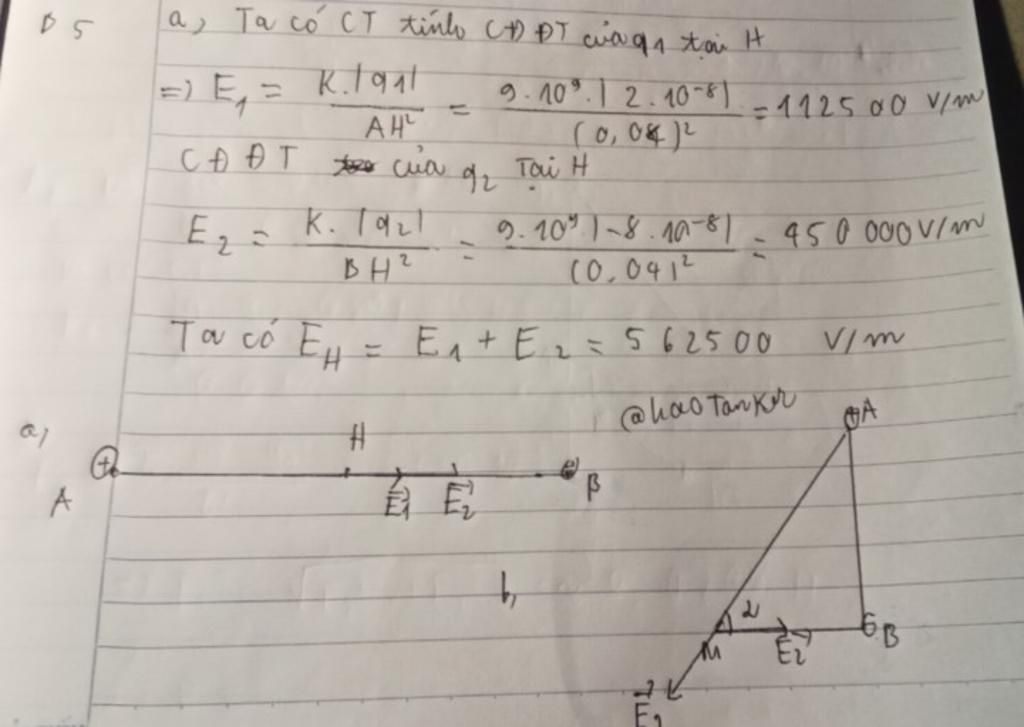 B5 a, Ta có CT tính CĐĐT của q1 tại H
=> E1 = K.|q1| / AH² = 9.10⁹.|2.10⁻⁸| / (0,04)² = 112500 V/m
CĐĐT của q2 Tại H
E2 = K.|q2| / BH² = 9.10⁹.|-8.10⁻⁸| / (0,04)² = 450000 V/m
Ta có EH = E1 + E2 = 562500 V/m
@haoTanker
a,
A H E1 E2 B
b,
A
α
M E2 B
E1